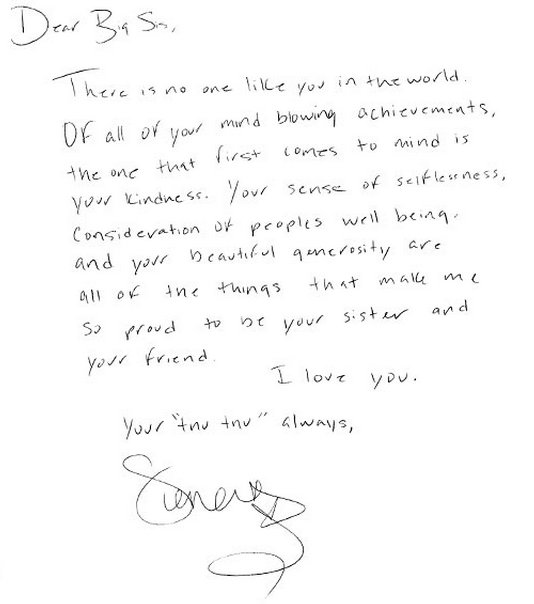 Dear Big Sis,
There is no one like you in the world.
Of all of your mind blowing achievements,
the one that first comes to mind is
your kindness. Your sense of selflessness,
consideration of peoples well being,
and your beautiful generosity are
all of the things that make me
so proud to be your sister and
your friend.
I love you.
Your "tnu tnu" always,